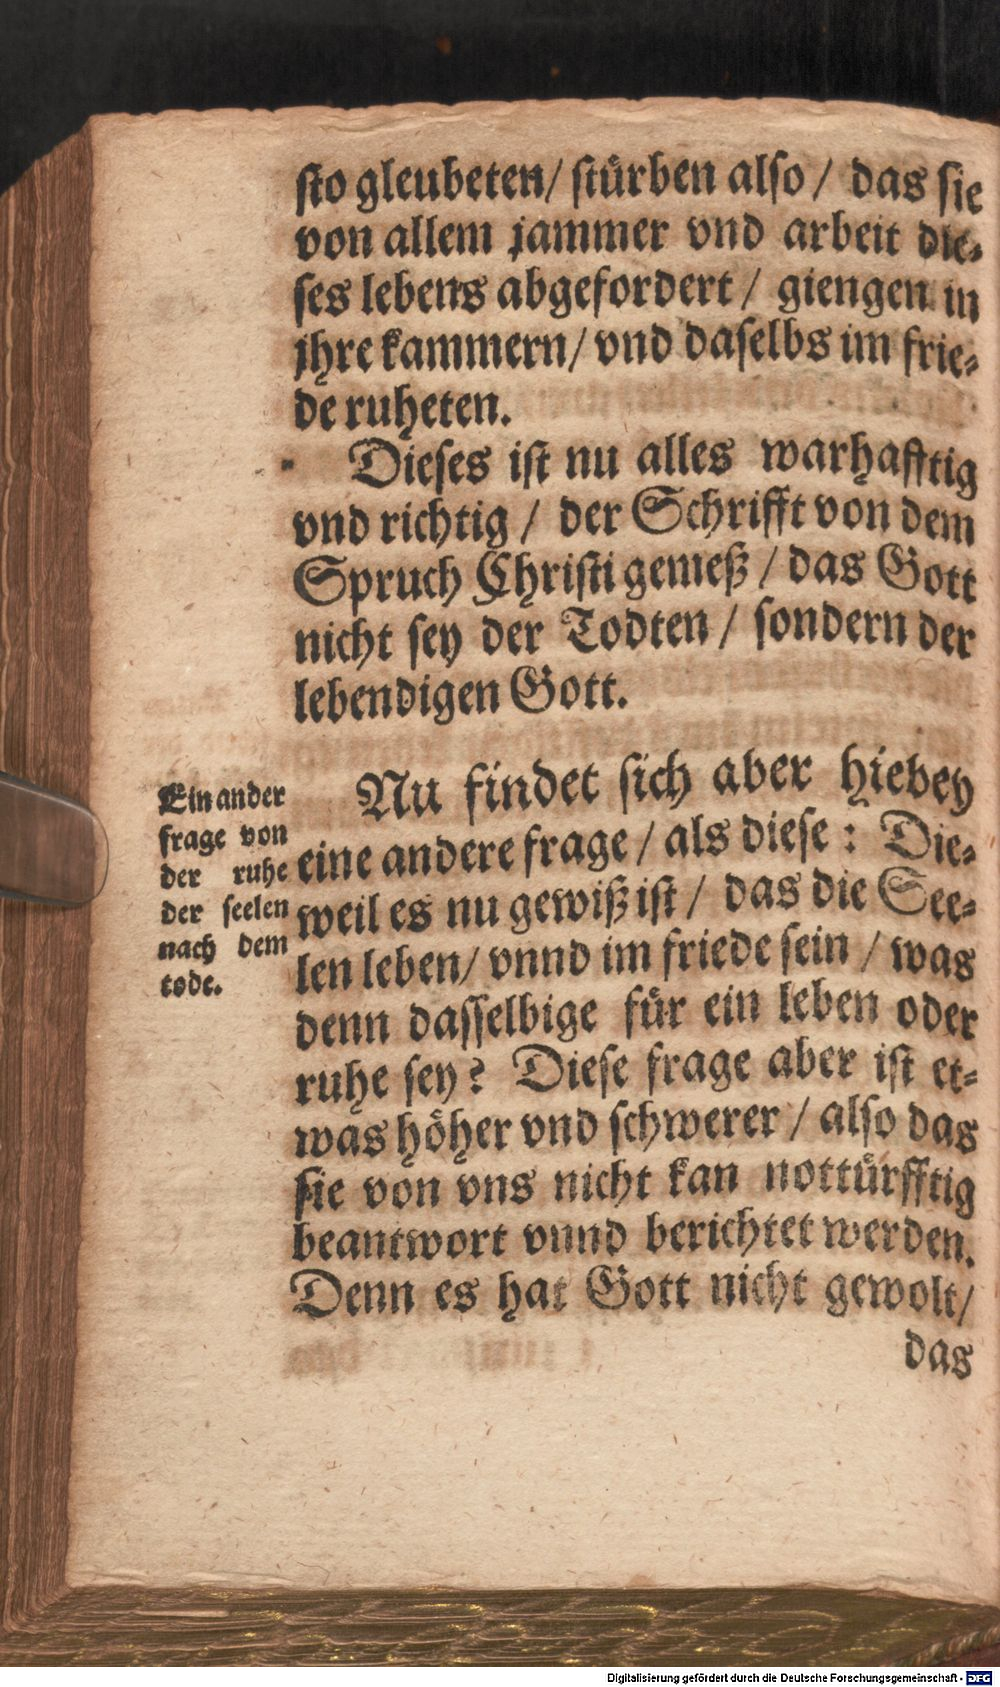 sto gleubeten/ stürben also / das sie
von allem jammer vnd arbeit die-
ses lebens abgefordert / giengen in
jhre kammern/ vnd daselbs im frie-
de ruheten.
Dieses ist nu alles warhafftig
vnd richtig / der Schrifft von dem
Spruch Christi gemeß / das Gott
nicht sey der Todten / sondern der
lebendigen Gott.
Ein ander
frage von
der ruhe
der seelen
nach dem
tode.
Nu findet sich aber hiebey
eine andere frage / als diese : Die-
weil es nu gewiß ist / das die See-
len leben/ vnnd im friede sein / was
denn dasselbige für ein leben oder
ruhe sey? Diese frage aber ist et-
was höher vnd schwerer / also das
sie von vns nicht kan nottürfftig
beantwort vnnd berichtet werden.
Denn es hat Gott nicht gewolt/
das
Digitalisierung gefördert durch die Deutsche Forschungsgemeinschaft - DFG